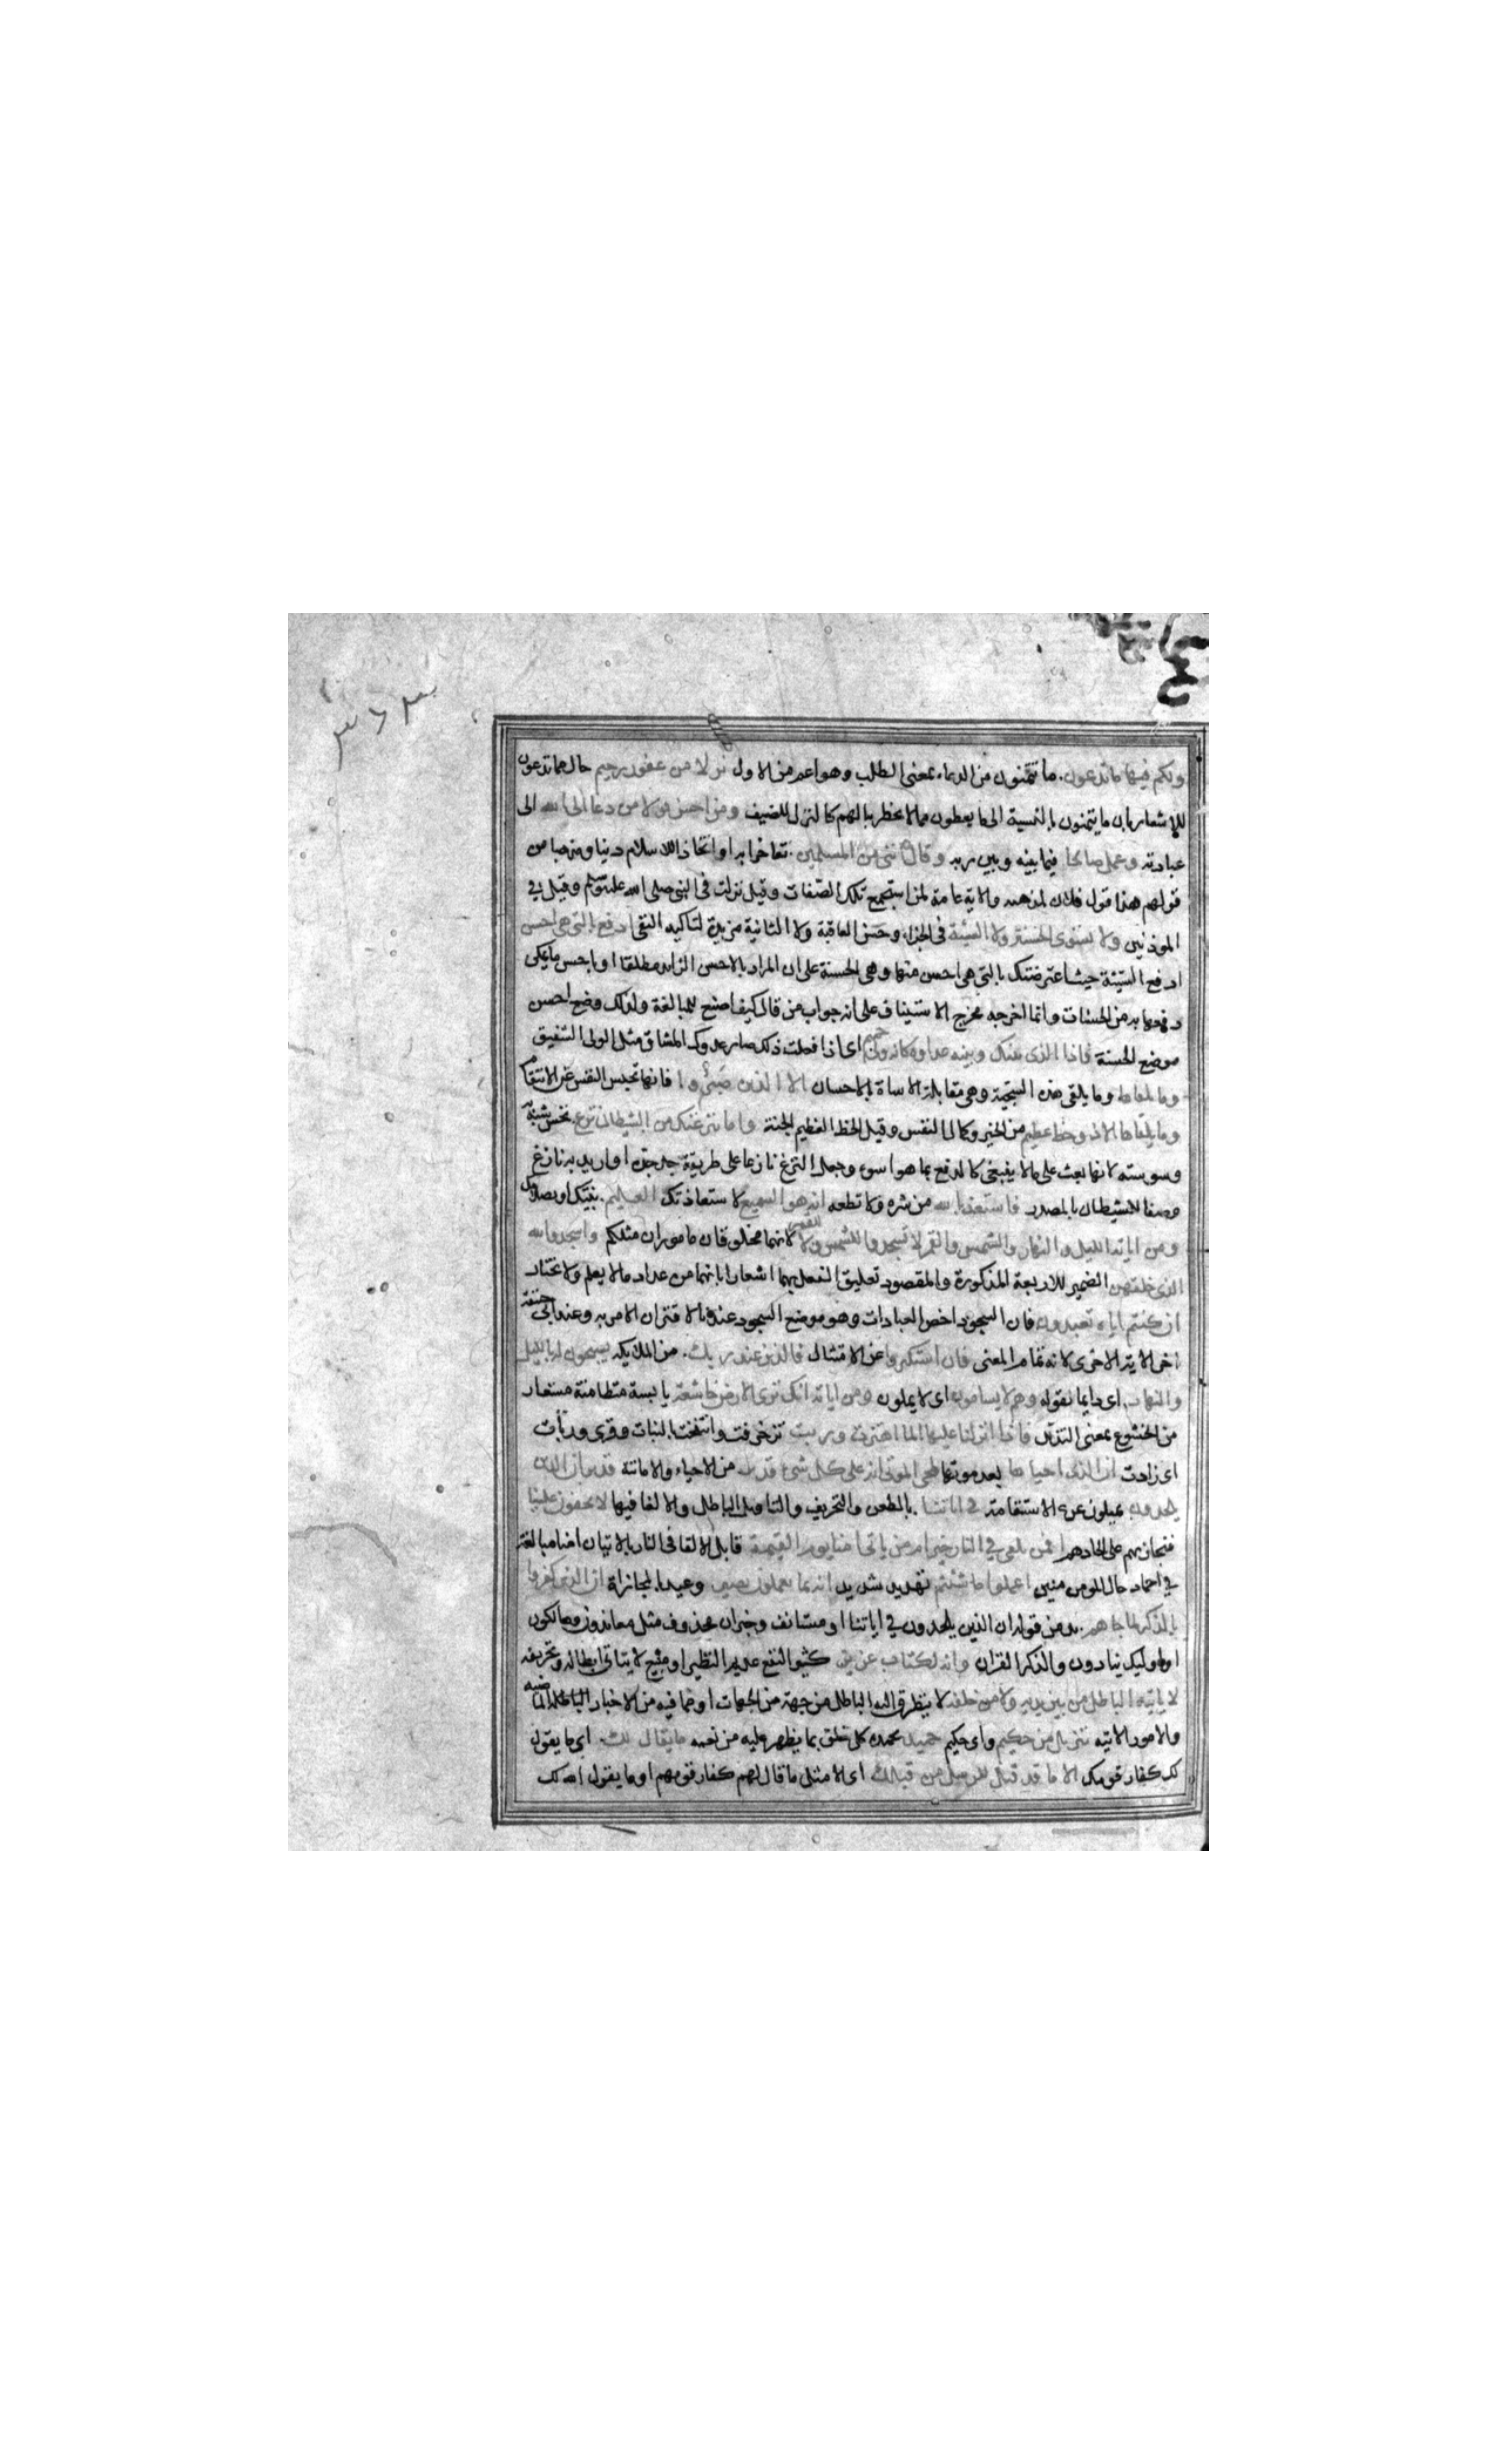 ٣٦٣
ولكم فيها ما تدعون ما تتمنون من الدعاء بمعنى الطلب وهو اعم من الاول نزلا من غفور رحيم حال مما تدعون
للاشعار بان ما يتمنون بالنسبة الى ما يعطون مما لا يخطر ببالهم كالنزل للضيف ومن احسن قولا من دعا الى الله الى
عبادته وعمل صالحا فيما بينه وبين ربه وقال انني من المسلمين تفاخرا به او اتخاذا للاسلام دينا ومذهبا من
قولهم هذا قول فلان لمذهبه والاية عامة لمن استجمع تلك الصفات وقيل نزلت في النبي صلى الله عليه وسلم وقيل في
الموذنين ولا يستوى الحسنة ولا السيئة في الجزاء وحسن العاقبة ولا الثانية مزيدة لتاكيد النفى ادفع بالتي هي احسن
ادفع السيئة حيث اعترضتك بالتي هي احسن منها وهي الحسنة على ان المراد بالاحسن الزايد مطلقا او باحسن ما يمكن
دفعها به من الحسنات وانما اخرجه مخرج الاستيناف على انه جواب من قال كيف اصنع للمبالغة ولذلك وضع احسن
موضع الحسنة فاذا الذى بينك وبينه عداوة كانه ولى حميم اى اذا فعلت ذلك صار عدوك المشاق مثل الولى الشفيق
وما يلقاها وما يلقى هذه السجية وهي مقابلة الاساة بالاحسان الا الذين صبروا فانها تحبس النفس عن الانتقام
وما يلقاها الا ذو حظ عظيم من الخير وكمال النفس وقيل الحظ العظيم الجنة واما ينزغنك من الشيطان نزغ نخس شبه به
وسوسته لانها بعث على ما لا ينبغى كالدفع بما هو اسوء وجعل النزغ نازغا على طريقة جد جده او اريد به نازغ
وصفا للشيطان بالمصدر فاستعذ بالله من شره ولا تطعه انه هو السميع لاستعاذتك العليم بنيتك او بصلاحك
ومن اياته الليل والنهار والشمس والقمر لا تسجدوا للشمس ولا للقمر لانهما مخلوقان ماموران مثلكم واسجدوا لله
الذى خلقهن الضمير للاربعة المذكورة والمقصود تعليق الفعل بهما اشعارا بانهما من عداد مالا يعلم ولا يختار
ان كنتم اياه تعبدون فان السجود اخص العبادات وهو موضع السجود عندنا لاقتران الامر به وعند ابى حنيفة
اخر الاية الاخرى لانه تمام المعنى فان استكبروا عن الامتثال فالذين عند ربك من الملايكه يسبحون له بالليل
والنهار اى دايما لقوله وهم لا يسامون اى لا يملون ومن اياته انك ترى الارض خاشعة يابسة متطامنة مستعار
من الخشوع بمعنى التذلل فاذا انزلنا عليها الما اهتزت وربت تزخرفت وانتفخت بالنبات وقرى وربأت
اى زادت ان الذى احياها بعد موتها لمحى الموتى انه على كل شى قدير من الاحياء والاماتة ان الذين
يلحدون يميلون عن الاستقامة في اياتنا بالطعن والتحريف والتاويل الباطل والالغا فيها لا يخفون علينا
فنجازيهم على الحادهم افمن يلقى في النار خير ام من ياتى امنا يوم القيمة قابل الالقا في النار بالاتيان امنا مبالغة
في احماد حال المومنين اعملوا ما شئتم تهديد شديد انه بما تعملون بصير وعيد بالمجازاة ان الذين كفروا
بالذكر لما جاهم بدل من قوله ان الذين يلحدون في اياتنا او مستانف وخبران محذوف مثل معاندون وهالكون
او اوليك ينادون والذكر القران وانه لكتاب عزيز كثير النفع عديم النظير او منيع لا يتاتى ابطاله وتحريفه
لا ياتيه الباطل من بين يديه ولا من خلفه لا يتطرق اليه الباطل من جهة من الجهات او مما فيه من الاخبار الماضيه
والامور الاتيه تنزيل من حكيم واى حكيم حميد يحمده كل خلق بما يظهر عليه من نعمه ما يقال لك اى ما يقول
لك كفار قومك الا ما قد قيل للرسل من قبلك اى الا مثل ما قال لهم كفار قومهم او ما يقول الله لك